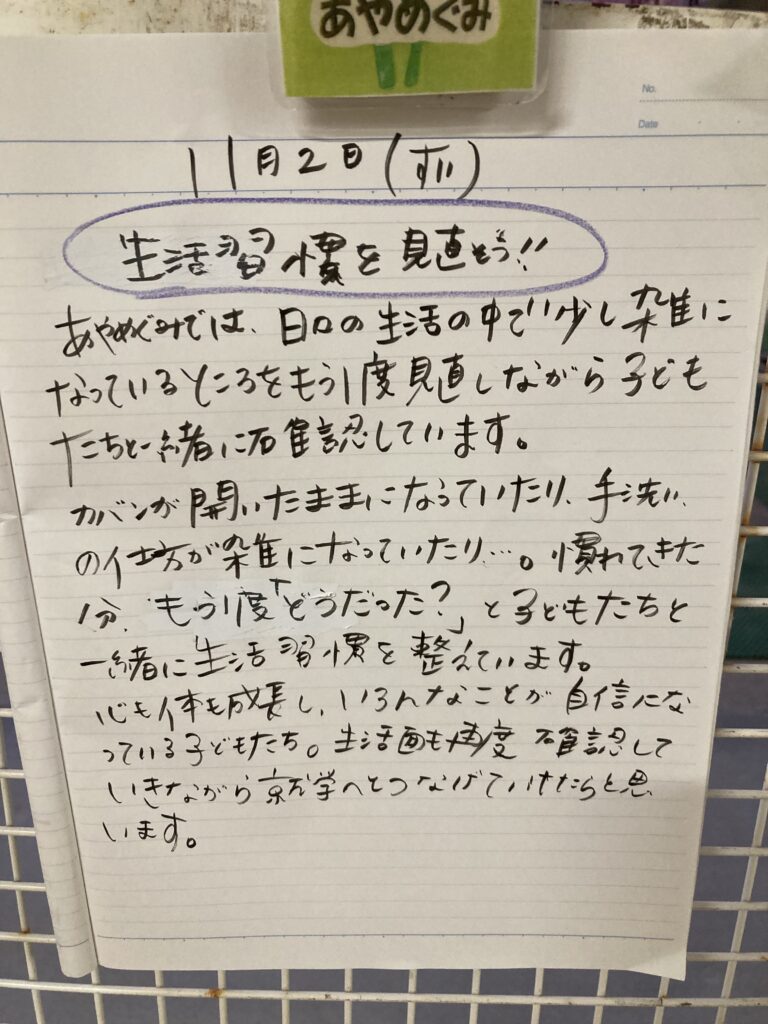 あやめぐみ
No.
Date
11月2日(すい)
生活習慣を見直そう!!
あやめぐみでは、日々の生活の中で少し雑に
なっているところをもう1度見直しながら子ども
たちと一緒に確認しています。
カバンが開いたままになっていたり、手洗い
の仕方が雑になっていたり…。慣れてきた
分、もう1度「どうだった?」と子どもたちと
一緒に生活習慣を整えています。
心も体も成長し、いろんなことが自信にな
っている子どもたち。生活面も都度確認して
いきながら就学へとつなげていけたらと思
います。